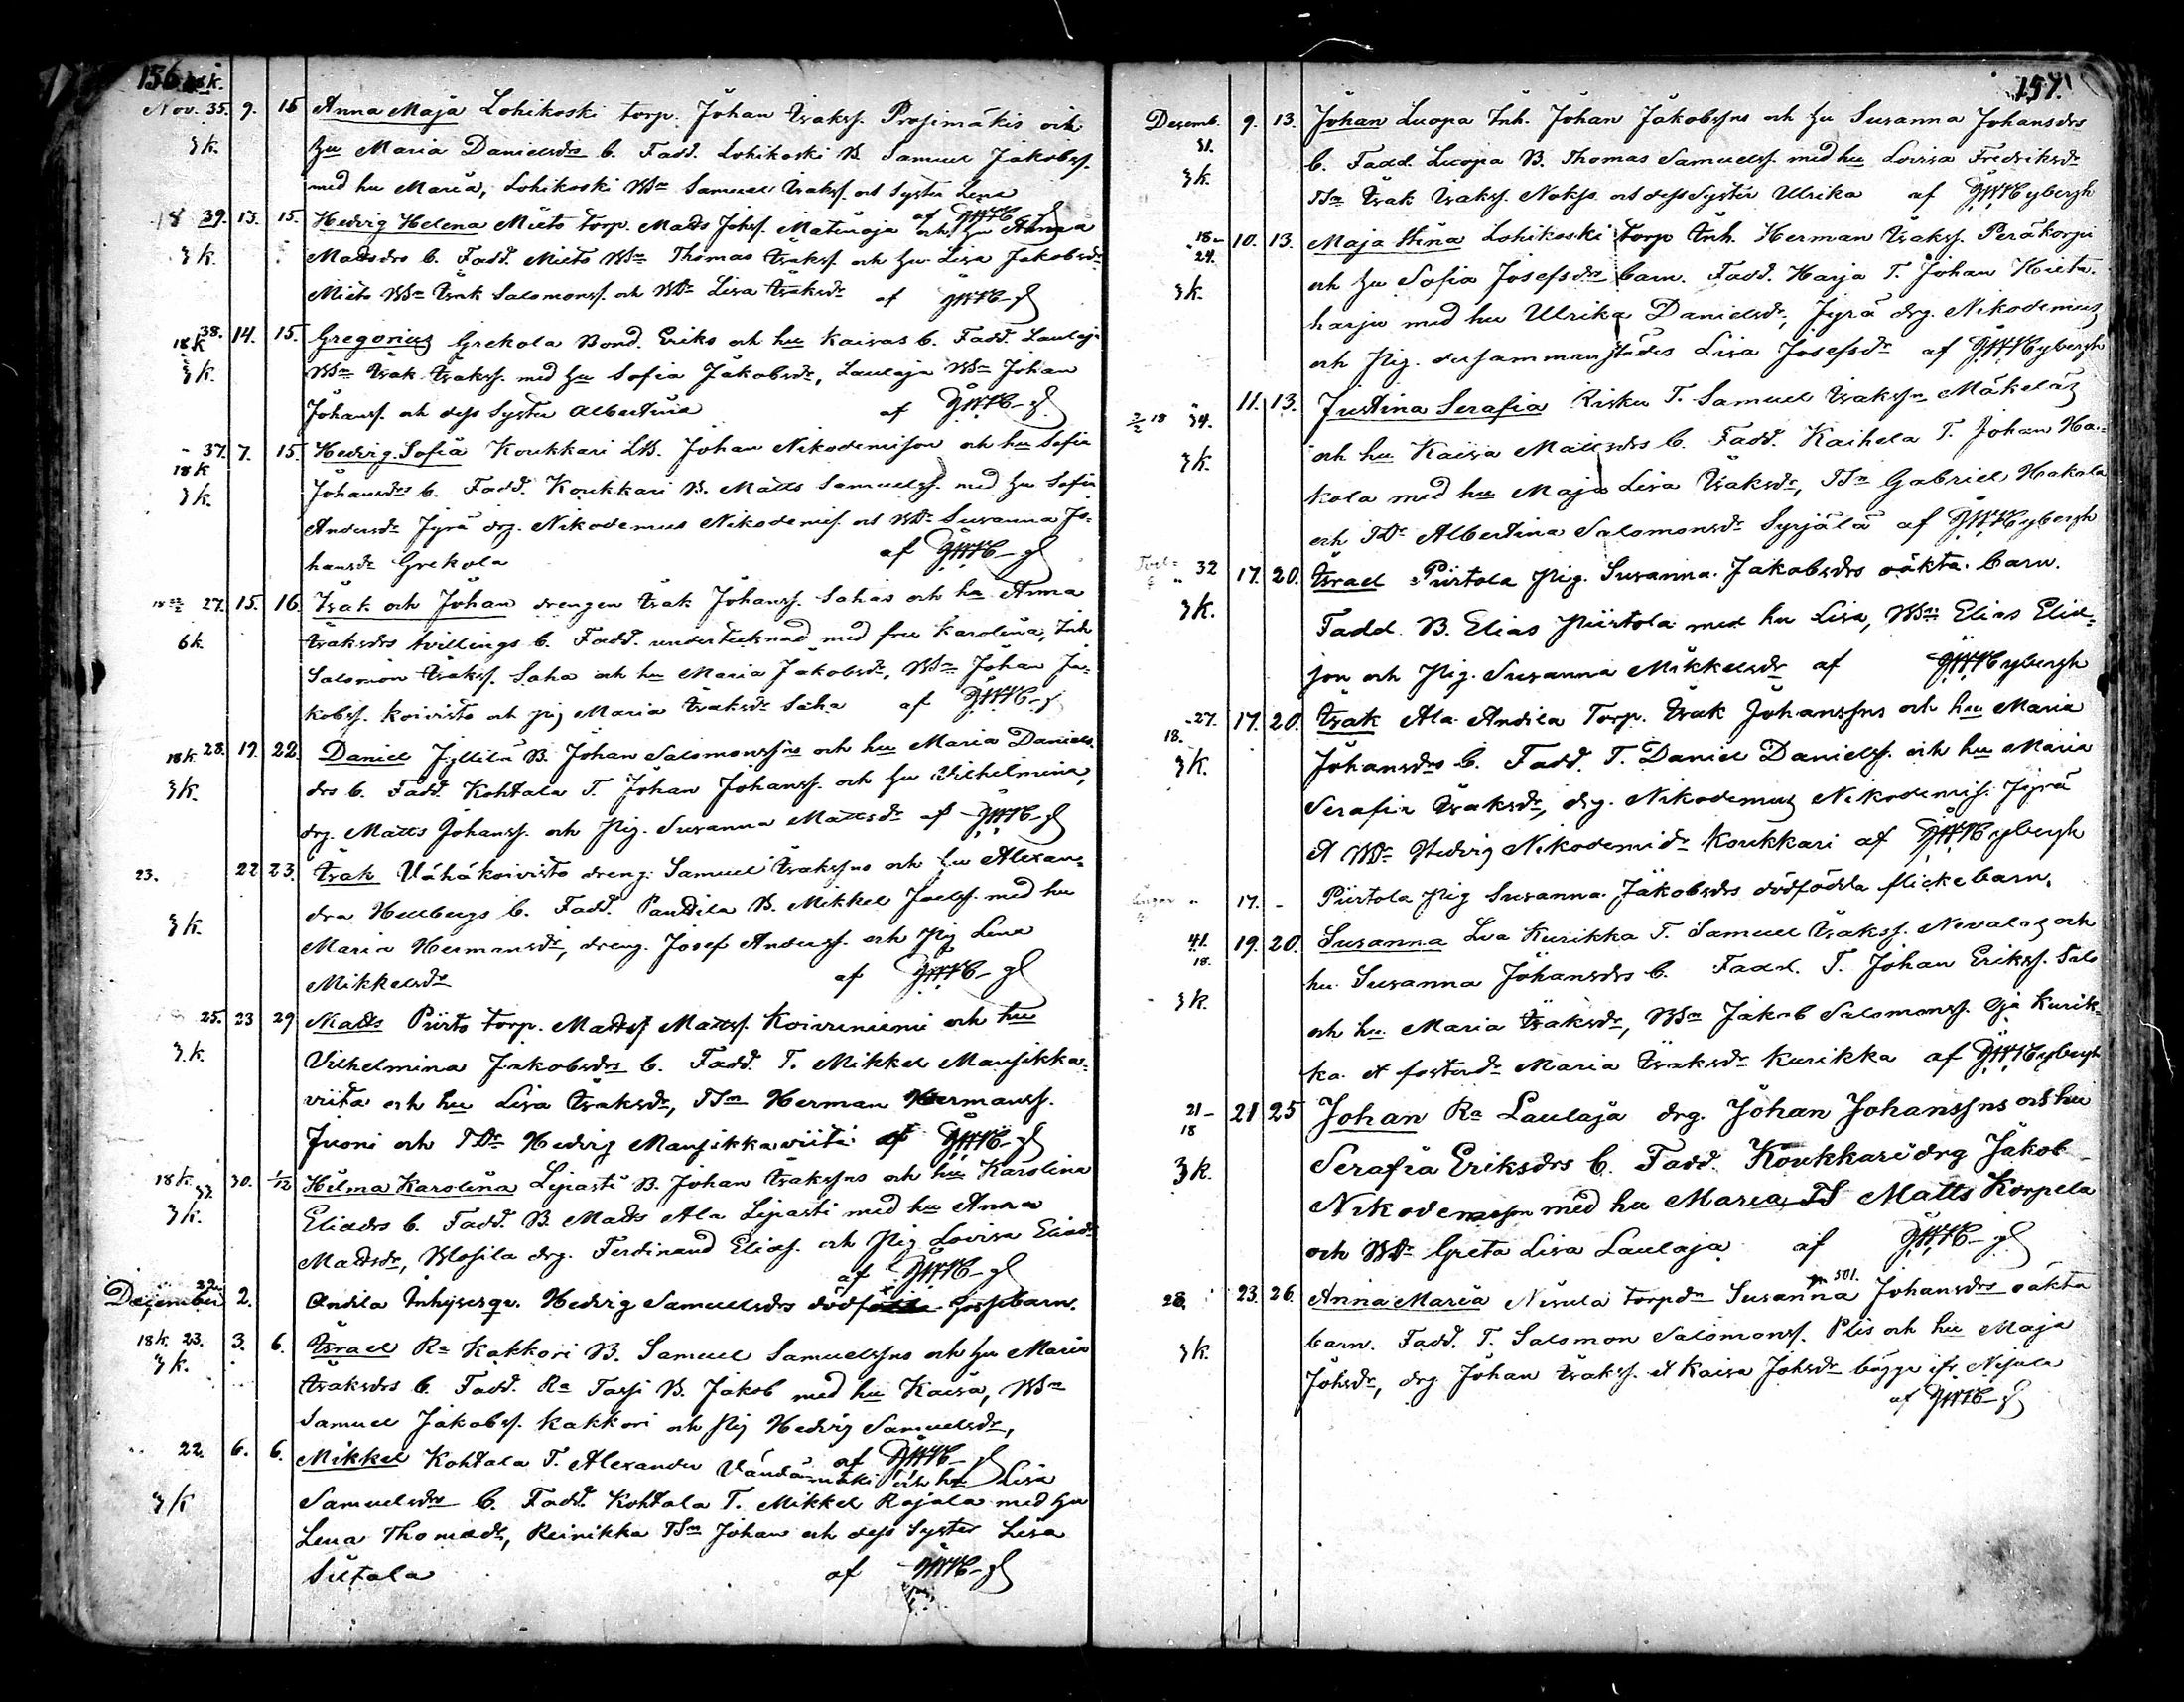 156
Nov. 35. 9. 15 Anna Maja Lohikoski torp. Johan Isakss. Prosimäkis och
3 k. hu Maria Danielsdrs b. Fadd. Lohikoski B. Samuel Jakobss.
med hu Maria, Lohikoski BSn Samuel Isakss. och Syster Lena
39. 13. 15. Hedvig Helena Mieto torp. Matts Johss. och hu Anna
3 k. Mattsdrs b. Fadd. Mieto BSn Thomas Isakss. och hu Lisa Jakobsdr
Mieto BSn Isak Salomonss. och BDr Lisa Isaksdr af
38. 14. 15. Gregorius Grekola Bond. Eriks och hu Kaisas b. Fadd. Laulaja
18 k
3 k. BSn Isak Isakss. med hu Sofia Jakobsdr, Laulaja BSn Johan
Johanss. och dess Syster Albertina af
37. 7. 15. Hedvig Sofia Koukkari LB. Johan Nikodemisson och hu Sofia
18 k
3 k. Johansdrs b. Fadd. Koukkari B. Matts Samuelss. med hu Sofia
Andersdr Jyrä drg. Nikodemus Nikodemis. och BDr Susanna Jo-
hansdr Grekola af
27. 15. 16. Isak och Johan drengen Isak Johanss. Sahas och hu Anna
6 k. Isaksdrs tvillings b. Fadd. undertecknad med fru Karolina, Inh
Salomon Isakss. Saha och hu Maria Jakobsdr, BSn Johan Ja-
kobss. Koivisto och pig Maria Isaksdr Saha af
18 k. 28. 19. 22. Daniel Jyllilä B. Johan Salomonssns och hu Maria Daniels-
3 k. drs b. Fadd. Kohtala T. Johan Johanss. och hu Vilhelmina,
drg. Matts Johanss. och Pig. Susanna Mattsdr af
23. 22 23. Isak Vähäkoivisto dreng. Samuel Isakssns och hu Alexan-
dra Hellbergs b. Fadd. Panttila B. Mikkel Joelss. med hu
3 k. Maria Hermansdr, dreng. Josef Anderss. och Pig Lena
Mikkelsdr af
25. 23 29 Matts Piirto torp. Matts Mattss. Koivuniemi och hu
3 k. Vilhelmina Jakobsdrs b. Fadd. T. Mikkel Mansikka-
viita och hu Lisa Isaksdr, TSn Herman Hermanss.
Juoni och TDr Hedvig Mansikkaviita af
18 k. 30. 1/12 Hilma Karolina Lipasti B. Johan Isakssns och hu Karolina
3 k. Eliedrs b. Fadd. B. Matts Ala Lipasti med hu Anna
Mattsdr, drg. Ferdinand Elias. och Pig Lovisa Eliedr
af
December 2. Andila Inhyserqv. Hedvig Samuelsdrs dödfödde gossebarn.
18 k. 23. 3. 6. Israel Ra Kakkori B. Samuel Samuelssns och hu Maria
3 k. Isaksdrs b. Fadd. Ra Tassi B. Jakob med hu Kaisa, BSn
Samuel Jakobss. Kakkori och Pig Hedvig Samuelsdr,
af
22. 6. 6. Mikkel Kohtala T. Alexander och hu Lisa
3 k Samuelsdrs b. Fadd. Kohtala T. Mikkel Rajala med hu
Lena Thomasdr, Reinikka TSn Johan och dess Syster Lisa
Siirtola af
157.
Desemb. 9. 13. Johan Luopa Inh. Johan Jakobssns och hu Susanna Johansdrs
31.
3 k. b. Fadd. Luopa B. Thomas Samuelss. med hu Lovisa Fredriksdr
TSn Isak Isakss. och dess Syster Ulrika af
18 10. 13. Maja Stina Lohikoski torp Inh. Herman Isakss. Peräkorpi
24.
3 k. och hu Sofia Josefsdrs barn. Fadd. Harja T. Johan Hieta-
harju med hu Ulrika Danielsdr, Jyrä drg. Nikodemus
och Pig. dersammanstädes Lisa Josefsdr af
34. 11. 13. Justina Serafia Risku T. Samuel Isakssn Mäkeläs
3 k. och hu Kaisa Mattsdrs b. Fadd. Kaihela T. Johan Ha-
kola med hu Maja Lisa Isaksdr, TSn Gabriel Hakola
och TDr Albertina Salomonsdr Syrjälä af
32 17. 20. Israel Piirtola Pig. Susanna Jakobsdrs oäkta barn.
3 k. Fadd. B. Elias Piirtola med hu Lisa, BSn Elias Elia-
son och Pig. Susanna Mikkelsdr af
27. 17. 20. Isak Ala Andila Torp. Isak Johanssns och hu Maria
18.
3 k. Johansdrs b. Fadd. T. Daniel Danielss. och hu Maria
Serafia Isaksdr, drg. Nikodemus Nikodemis. Jyrä
et BDr Hedvig Nikodemidr Koukkari af
17. - Piirtola Pig Susanna Jakobsdrs dödfödda flickebarn.
41. 19. 20. Susanna Lva Kurikka T. Samuel Isakss. Nevalas och
18.
3 k. hu Susanna Johansdrs b. Fadd. T. Johan Erikss. Salo
och hu Maria Isaksdr, BSn Jakob Salomonss. Oja Kurik-
ka et fosterdr Maria Isaksdr Kurikka af
21 21 25 Johan Ra Laulaja drg. Johan Johanssns och hu
18
3 k. Serafia Eriksdrs b. Fadd. Koukkari drg Jakob
Nikodemsson med hu Maria, TS Matts Korpela
och BDr Greta Lisa Laulaja af
28. 23. 26. Anna Maria Nisula torpdr Susanna Johansdrs oäkta
501.
3 k. barn. Fadd. T. Salomon Salomonss. Plis och hu Maja
Johsdr, drg Johan Isakss. et Kaisa Johsdr bägge ifr. Nisula
af